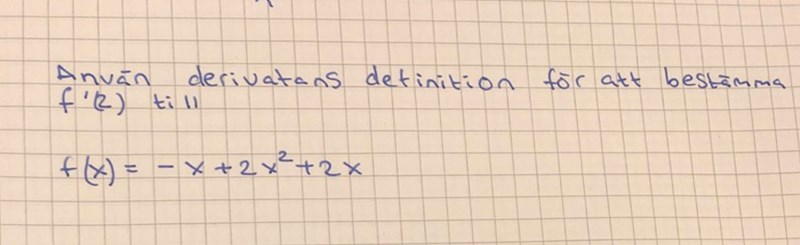 Använ derivatans definition för att bestämma
f'(2) till
f(x) = -x+2x²+2x